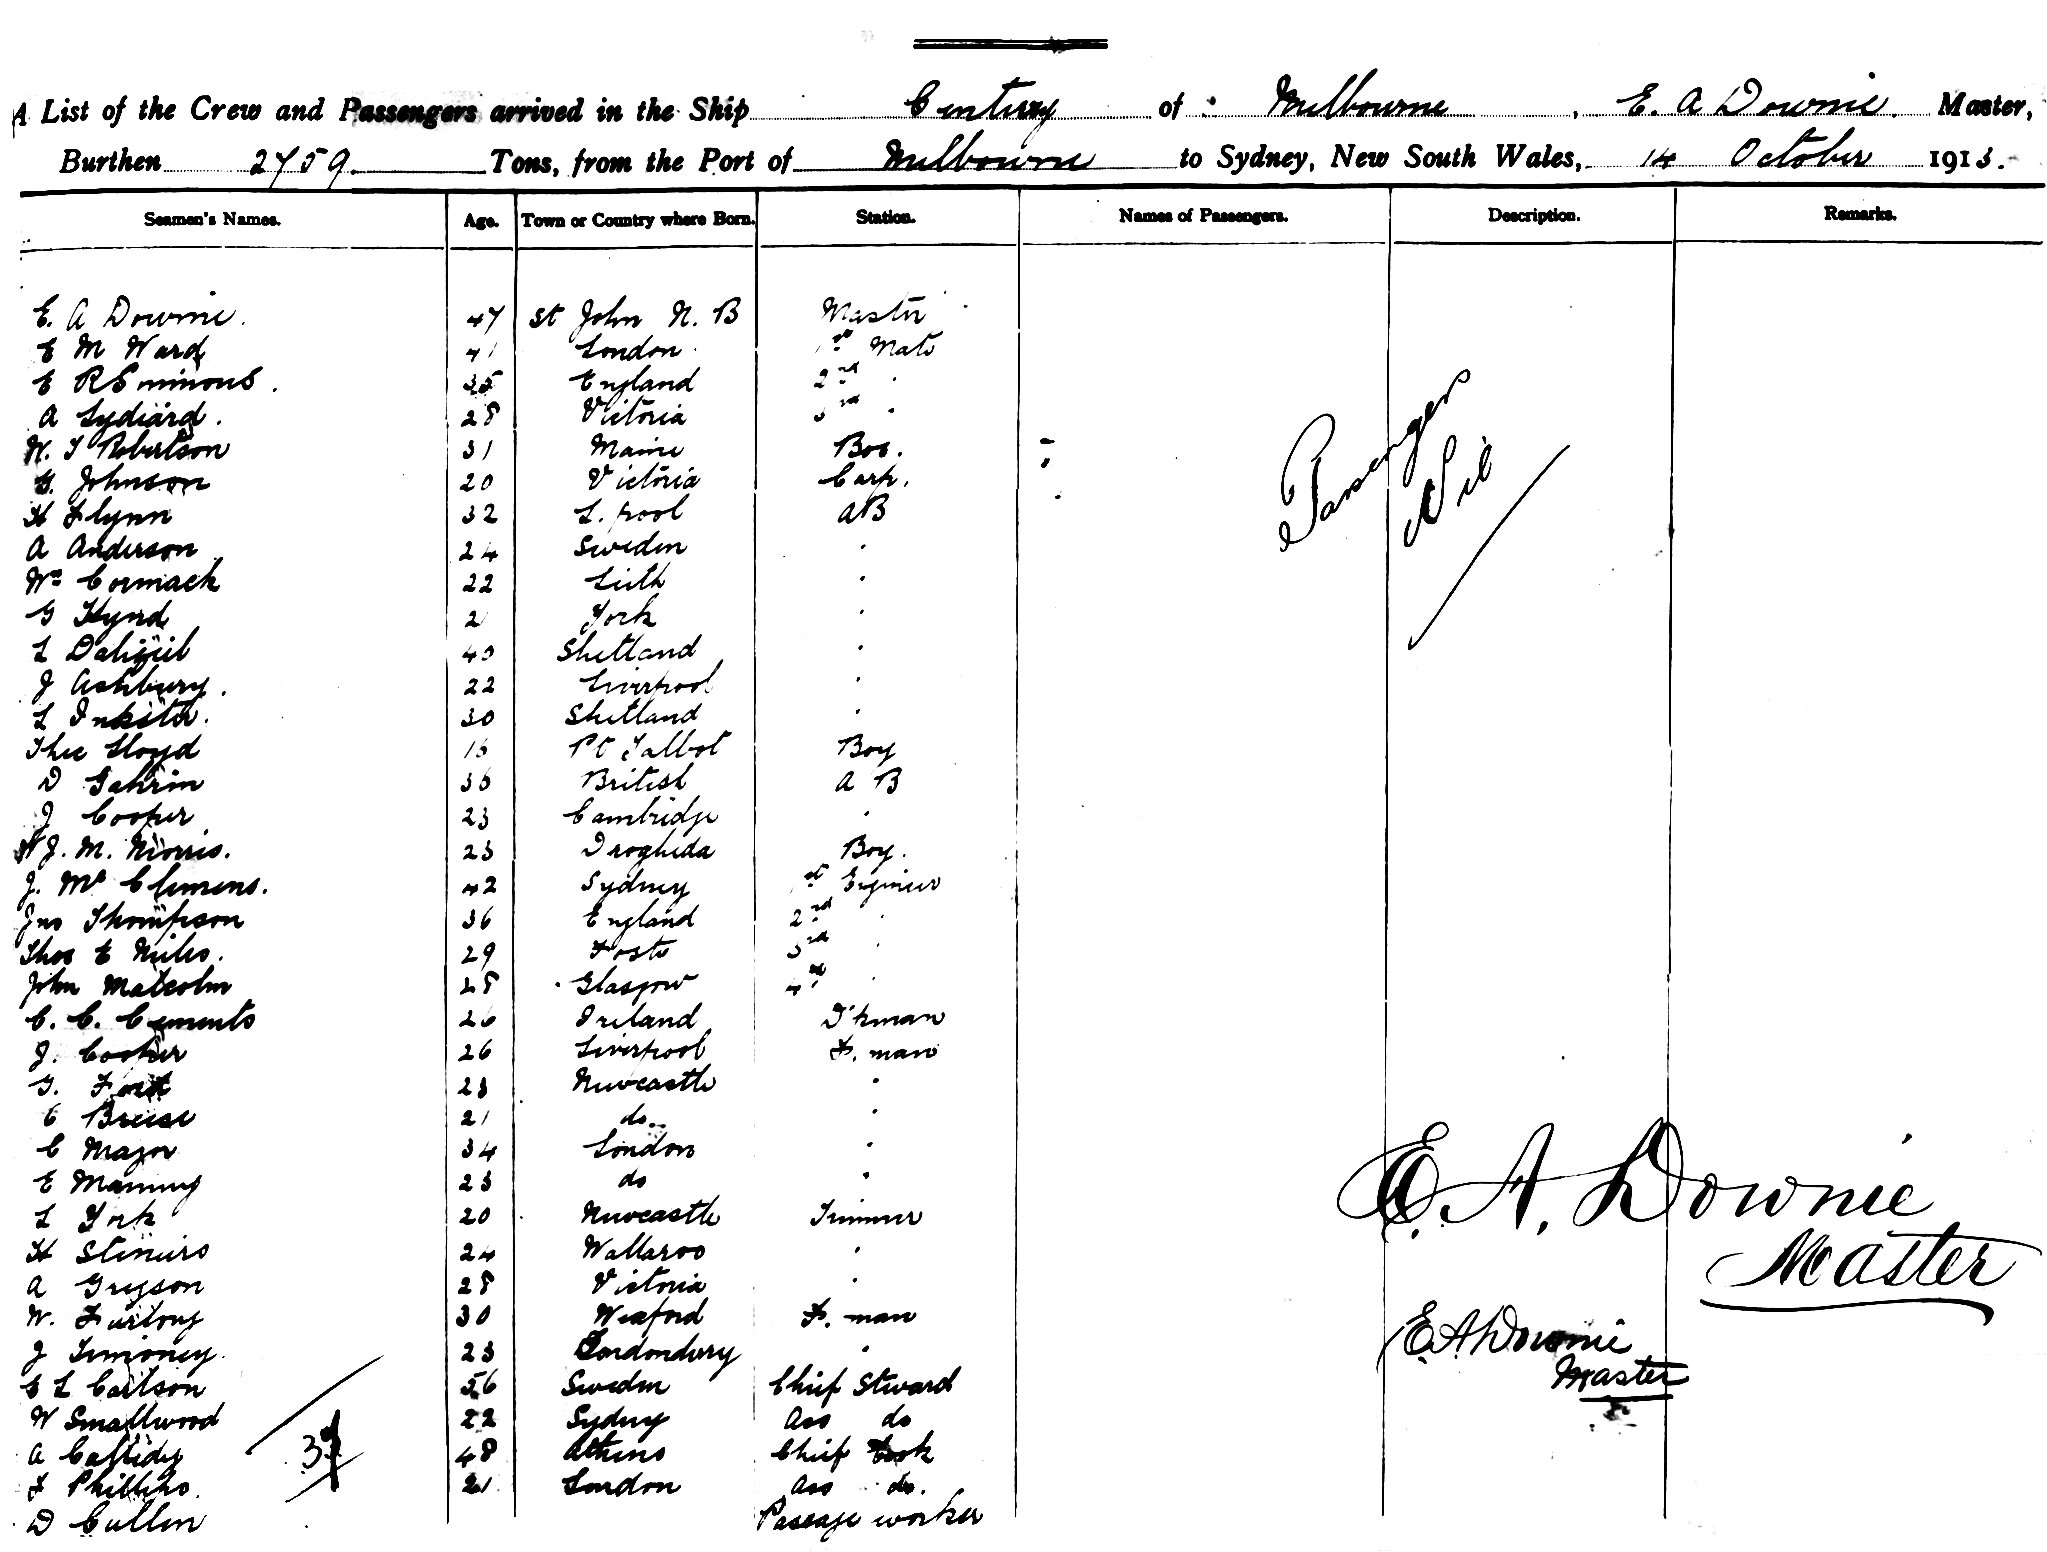 A List of the Crew and Passengers arrived in the Ship Century of Melbourne, E. A Downie. Master,
Burthen 2759. Tons, from the Port of Melbourne to Sydney, New South Wales, 14 October 1913.
Seamen's Names. Age. Town or Country where Born. Station. Names of Passengers. Description. Remarks.
E. A Downie. 47 St John N. B Master
E M Ward 41 London 1st Mate
E R Simmons. 35 England 2nd "
A Lydiard. 28 Victoria 3rd "
W. J Robertson 31 Maine Bos.
G. Johnson 20 Victoria Carp.
H Flynn 32 L. pool AB
A Anderson 24 Sweden "
Wm Cormack 22 Leith "
G Hynd 21 York "
L Dalziel 40 Shetland "
J Ashbury. 22 Liverpool "
L Inkster. 30 Shetland "
Lloyd Pt Talbot Boy
D 36 British A B
J Cooper 23 Cambridge "
J. M. Morris. 23 Drogheda Boy.
J. Mc Clemens. 42 Sydney 1st Engineer
Jno Thompson 36 England 2nd "
Thos E Miles. 29 3rd "
John Malcolm 28 Glasgow 4th "
C. C. Cements 26 Ireland D'kman
J. Cooper 26 Liverpool F. man
G. Ford 23 Newcastle "
C 21 do. "
C Major 34 London "
E Manning 23 do "
L York 20 Newcastle Trimmer
H 24 Wallaroo "
A Greyson 28 Victoria "
W. Furlong 30 Wexford F. man
J Timoney. 23 Londonderry "
E L Carlson 56 Sweden Chief Steward
W Smallwood 22 Sydney Ass do
A Cassidy 48 Athens Chief Cook
F Phillips. 21 London Ass do.
D Cullen Passage worker
Passengers
Nil
E. A. Downie
Master
E. A Downie
Master